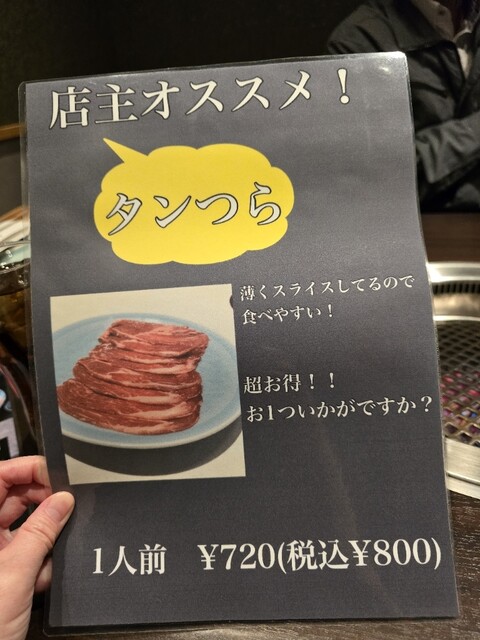 店主オススメ！
タンつら
薄くスライスしてるので
食べやすい！
超お得！！
お1ついかがですか？
1人前　¥720(税込¥800)